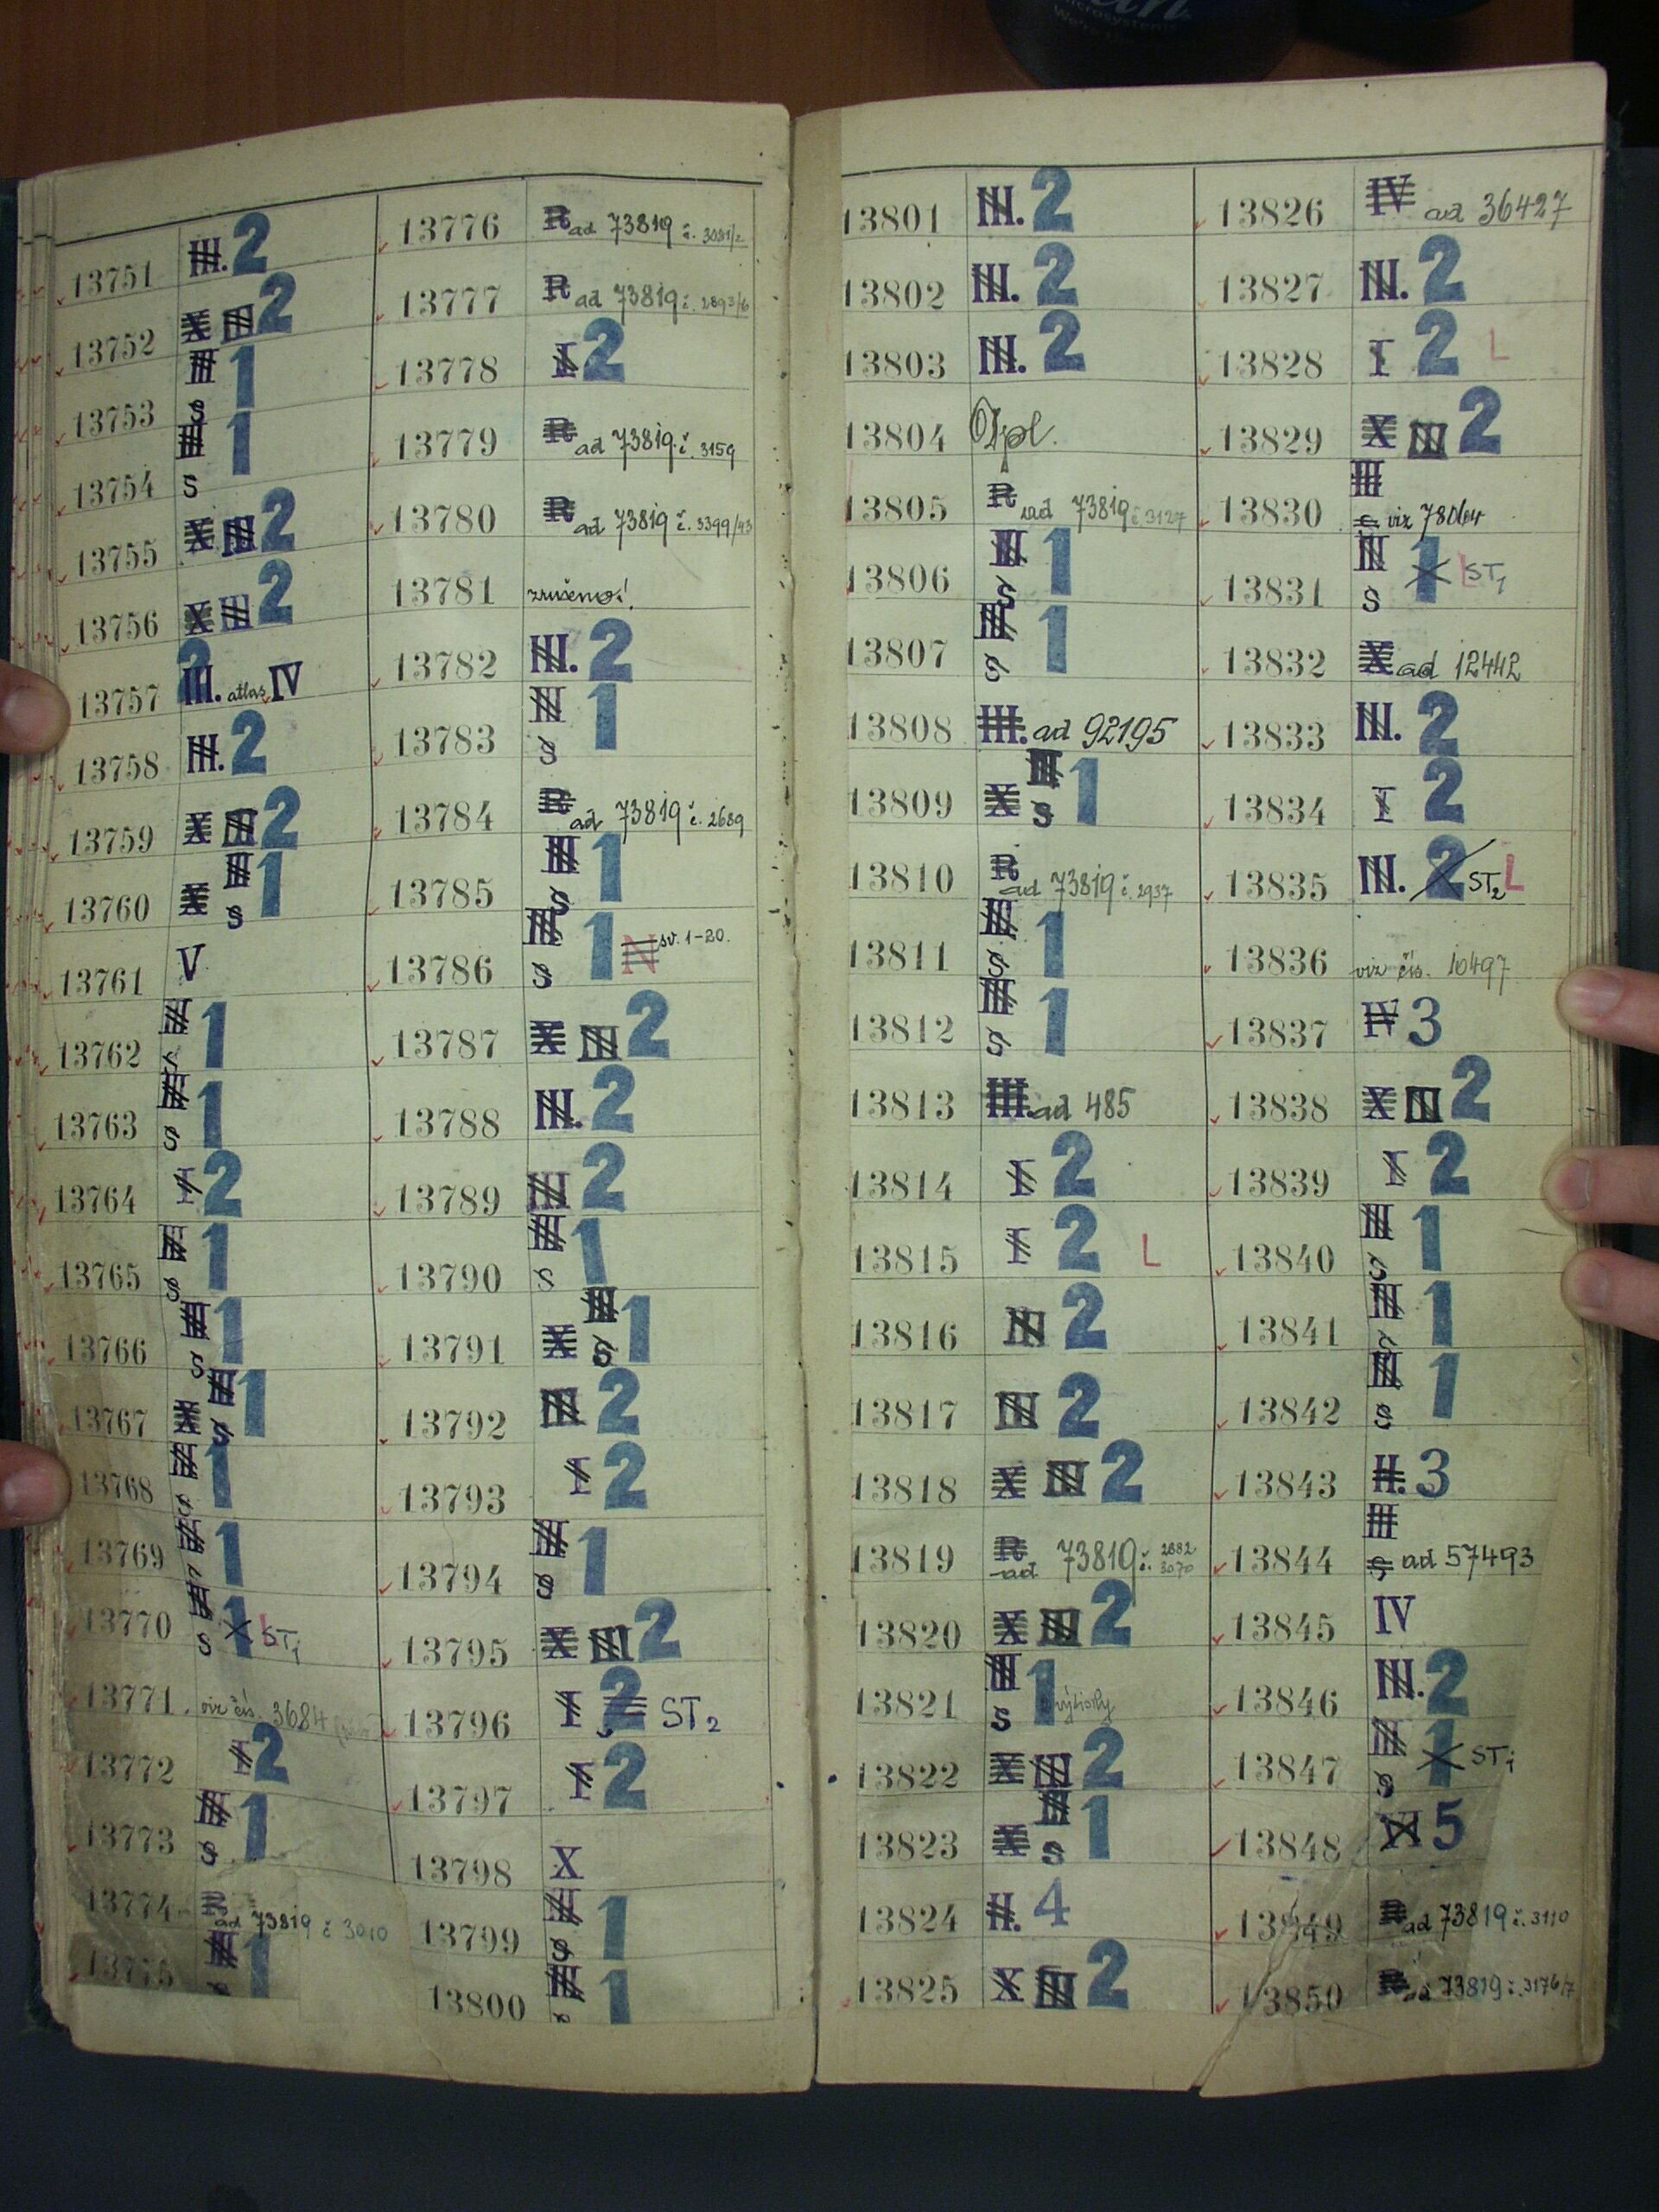 Microsystems
13751 III. 2
13752 X III 2
13753 III S 1
13754 III S 1
13755 X III 2
13756 X III 2
13757 2 III. atlas IV
13758 III. 2
13759 X III 2
13760 X III S 1
13761 V
13762 III S 1
13763 III S 1
13764 I 2
13765 III S 1
13766 III S 1
13767 X III S 1
13768 III S 1
13769 III 1
13770 III S 1 L ST1
13771 viz čís. 3684
13772 I 2
13773 III S 1
13774 ad 73819 č 3010
13775 III S 1
13776 R ad 73819 č. 3081/2
13777 R ad 73819 č. 2893/6
13778 I 2
13779 R ad 73819 č. 3159
13780 R ad 73819 č. 3399/43
13781 zrušeno!
13782 III. 2
13783 III S 1
13784 R ad 73819 č. 2689
13785 III S 1
13786 III S 1 N sv. 1-20.
13787 X III 2
13788 III. 2
13789 III 2
13790 III S 1
13791 X III S 1
13792 III 2
13793 I 2
13794 III S 1
13795 X III 2
13796 I 2 ST2
13797 I 2
13798 X
13799 III S 1
13800 III S 1
13801 III. 2
13802 III. 2
13803 III. 2
13804
13805 R ad 73819 č 3127
13806 III S 1
13807 III S 1
13808 III. ad 92195
13809 X III S 1
13810 R ad 73819 č. 2937
13811 III S 1
13812 III S 1
13813 III. ad 485
13814 I 2
13815 I 2 L
13816 III 2
13817 III 2
13818 X III 2
13819 R ad 73819 č. 2682 3070
13820 X III 2
13821 III S 1
13822 X III 2
13823 X III S 1
13824 II. 4
13825 X III 2
13826 IV ad 36427
13827 III. 2
13828 I 2 L
13829 X III 2
13830 III S viz
13831 III S 1 L ST1
13832 X ad 12442
13833 III. 2
13834 I 2
13835 III. 2 ST2 L
13836 viz čís. 10497
13837 IV 3
13838 X III 2
13839 I 2
13840 III S 1
13841 III S 1
13842 III S 1
13843 II. 3
13844 III S ad 57493
13845 IV
13846 III. 2
13847 III S 1 ST1
13848 VI 5
13849 R ad 73819 č. 3110
13850 R ad 73819 č. 3176/7